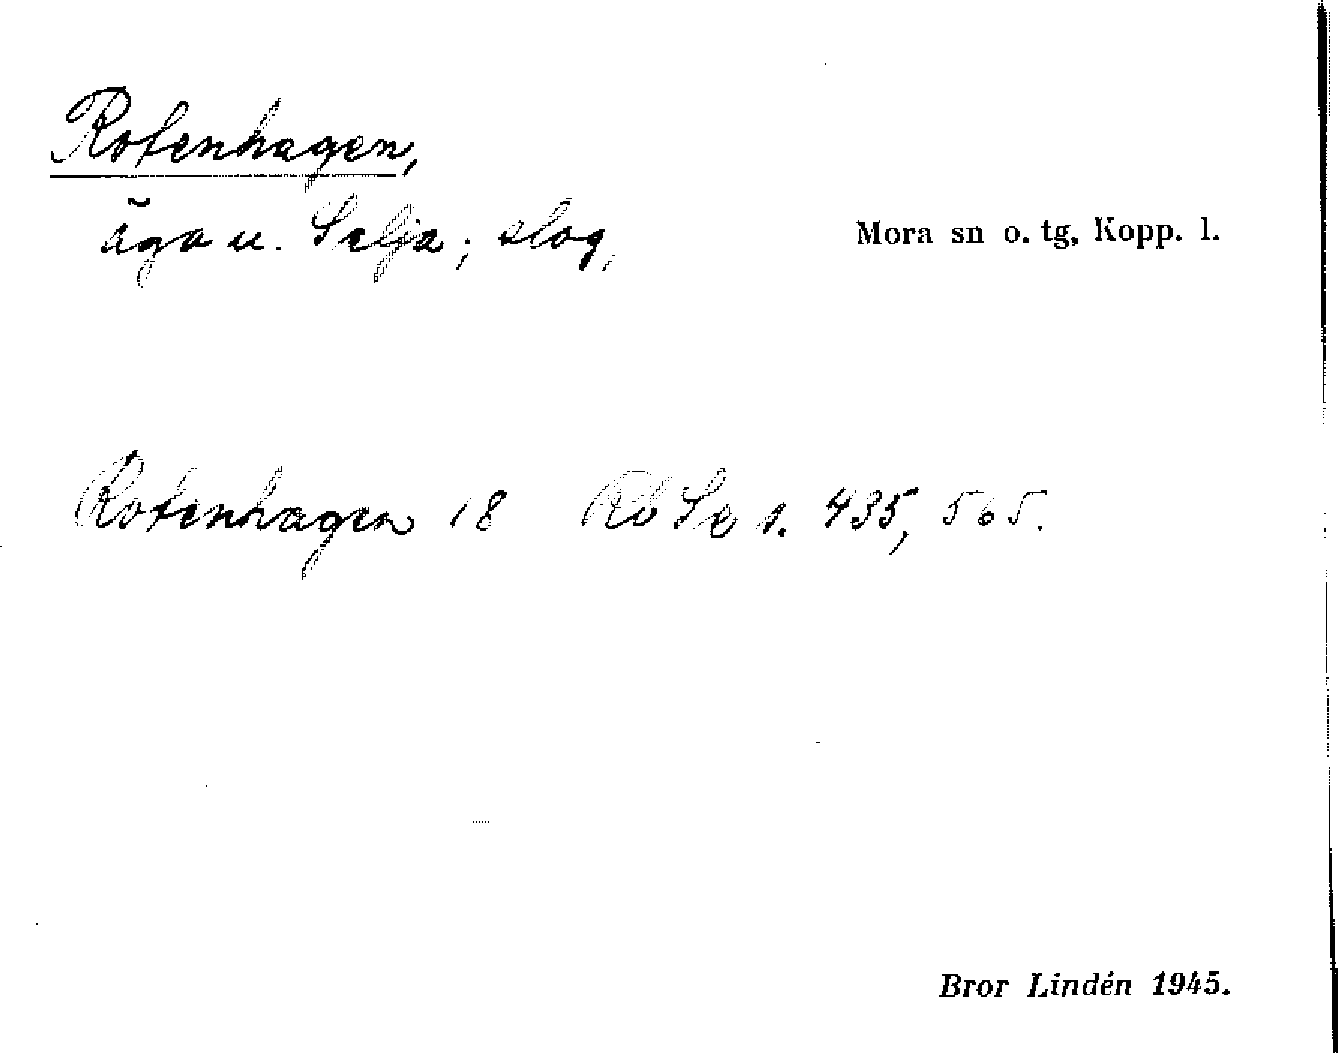 Rotenhagen,
äga u. Selja; slog,
Mora sn o. tg, Kopp. l.
Rotenhagen 18 Rb Se s. 435, 565.
Bror Lindén 1945.